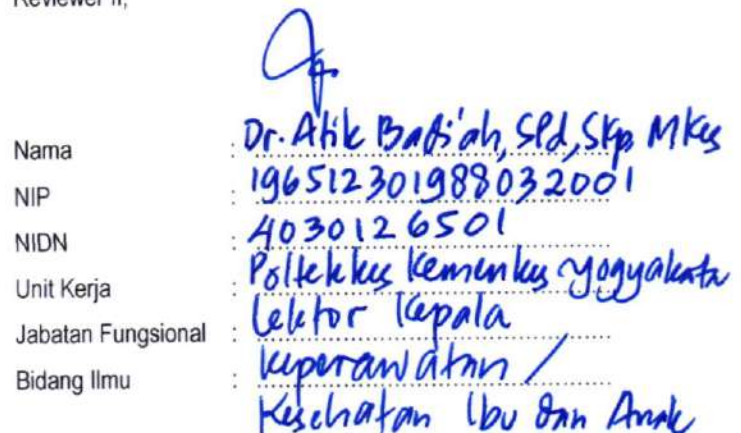 Reviewer II,
Nama : Dr. Atik Badi'ah, SPd, SKp, MKes
NIP : 196512301988032001
NIDN : 4030126501
Unit Kerja : Poltekkes Kemenkes Yogyakarta
Jabatan Fungsional : Lektor Kepala
Bidang Ilmu : Keperawatan /
Kesehatan Ibu dan Anak